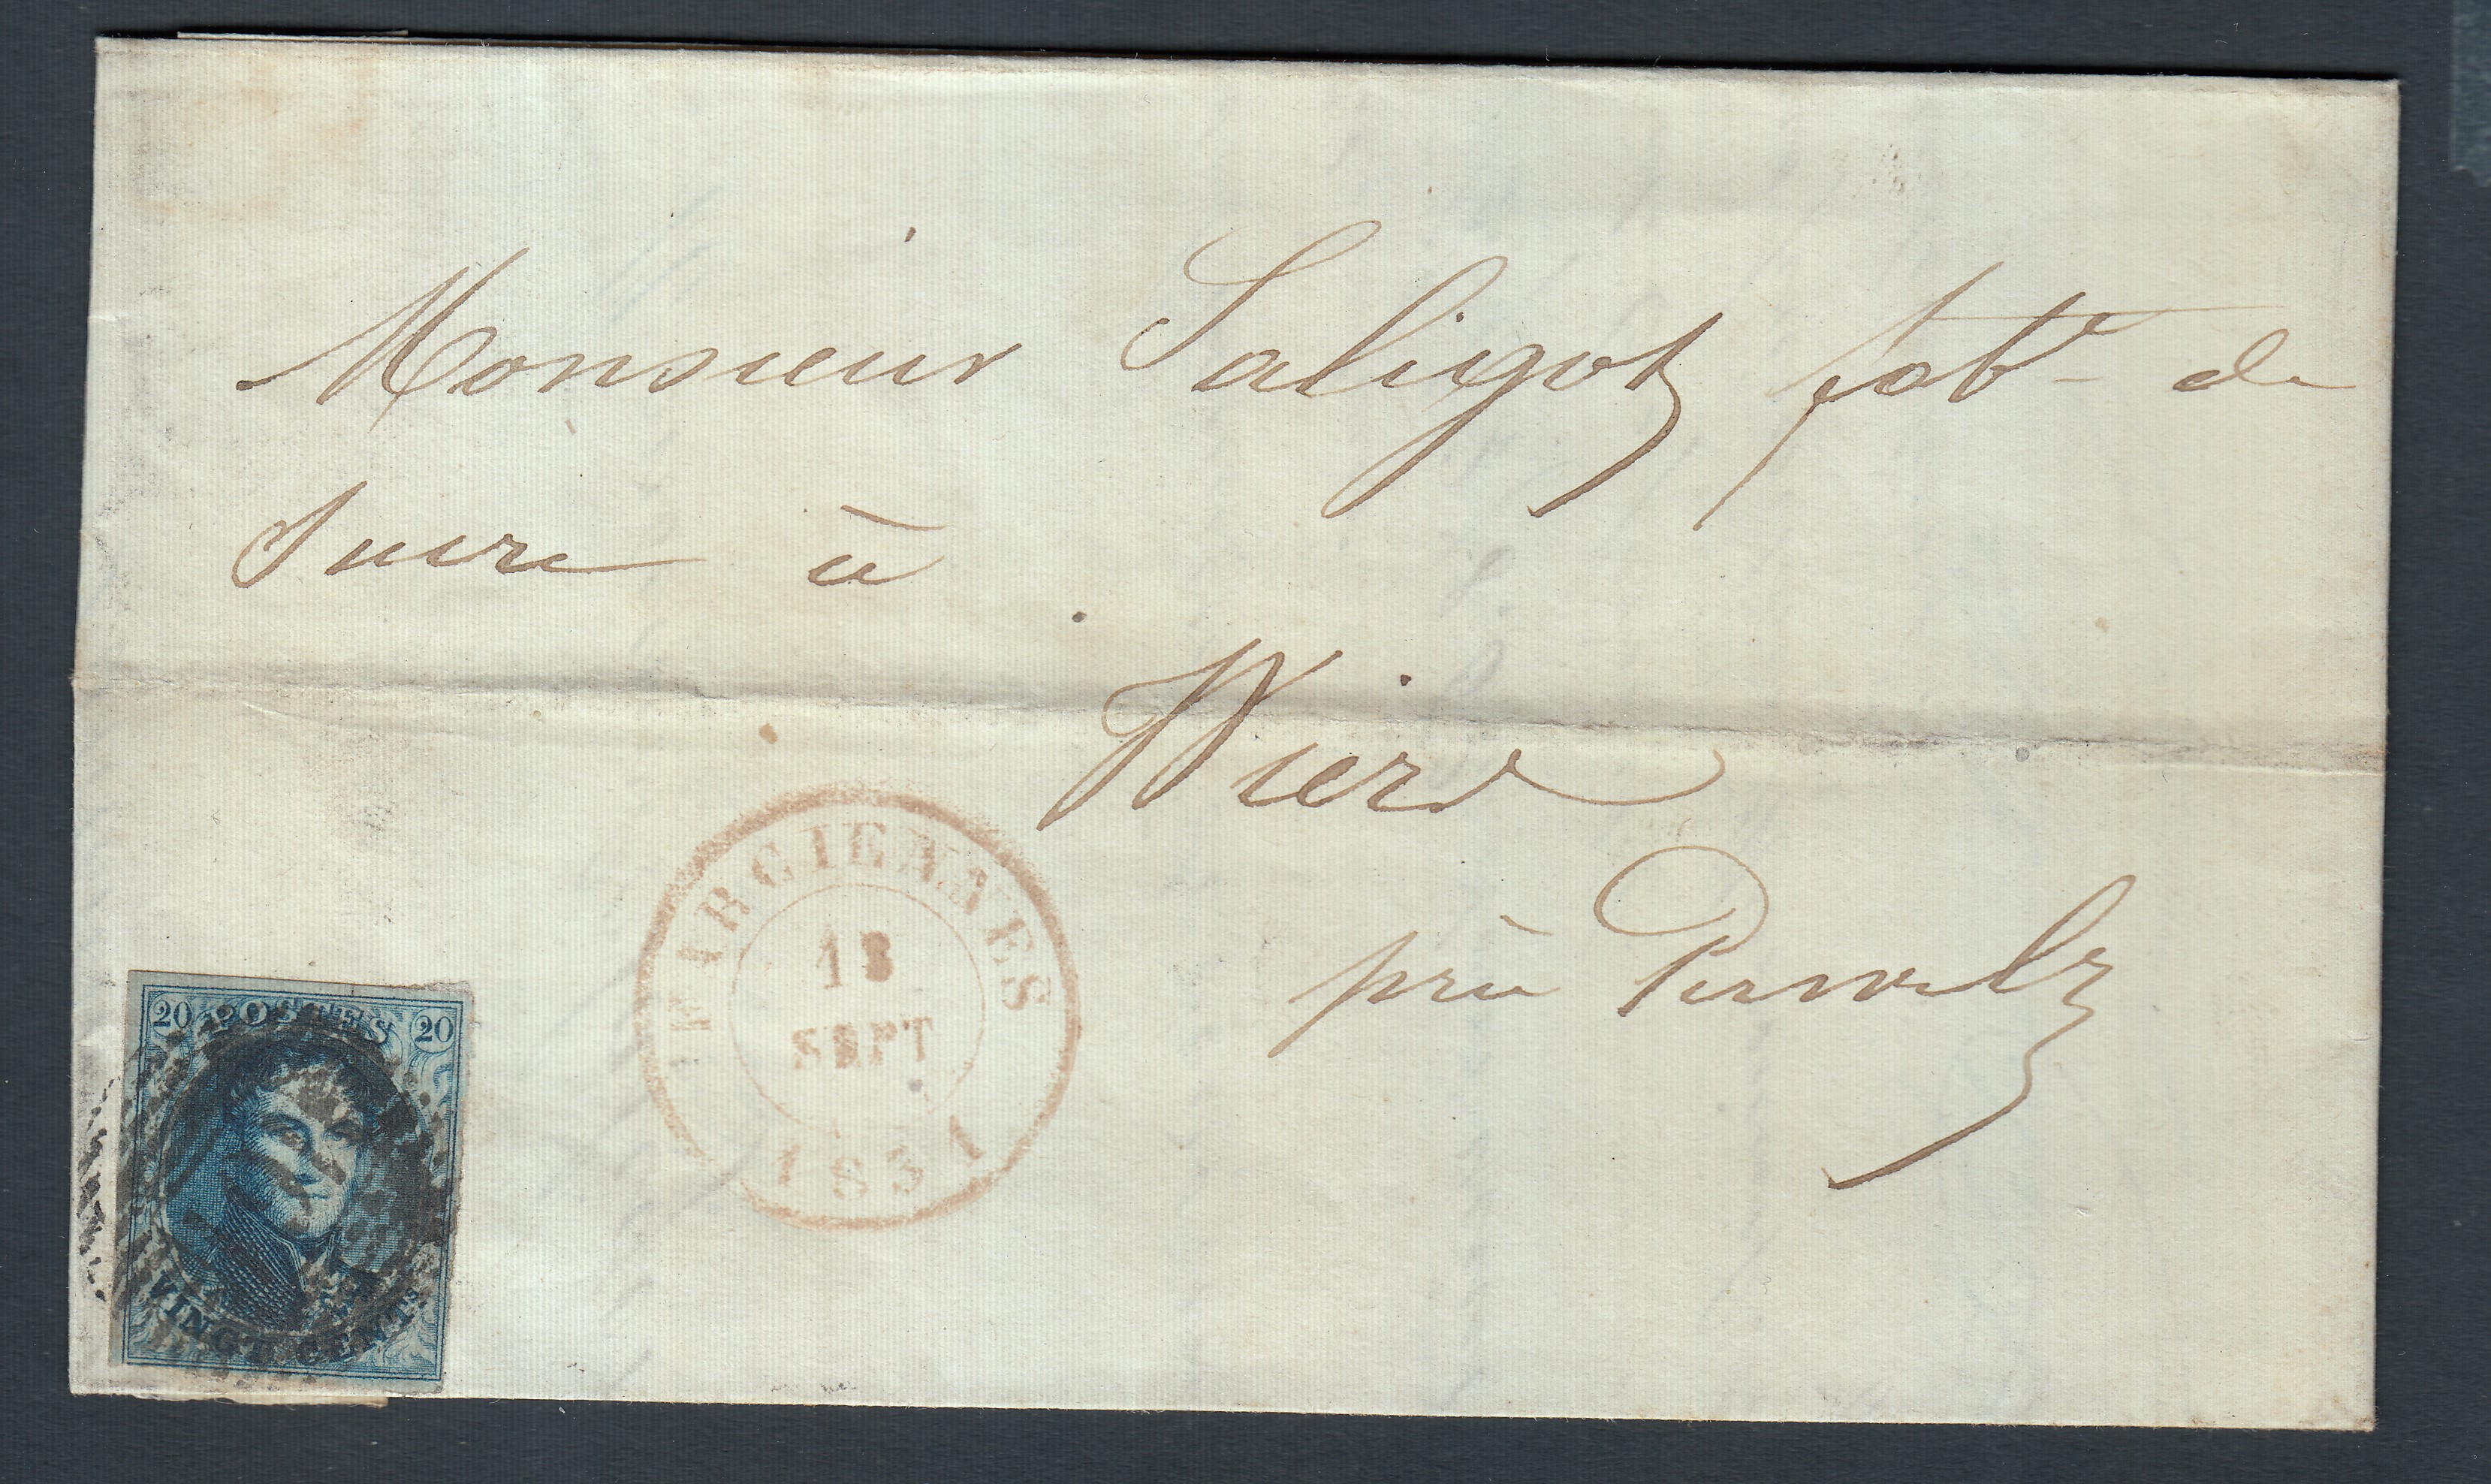 Monsieur Saligot fabt de
Sucre à
Wiers
près Perwelz
FARCIENNES
18
SEPT
1851
20 POSTES 20
VINGT CENTS